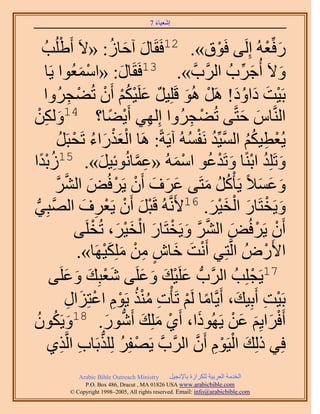 إشعياء 7
رَفِّعْهُ إِلَى فَوْق». 12فَقَالَ آحَازُ: «لاَ أَطْلُبُ
وَلاَ أُجَرِّبُ الرَّبَّ». 13فَقَالَ: «اسْمَعُوا يَا
بَيْتَ دَاوُدَ! هَلْ هُوَ قَلِيلٌ عَلَيْكُمْ أَنْ تُضْجِرُوا
النَّاسَ حَتَّى تُضْجِرُوا إِلهِي أَيْضًا؟ 14وَلكِنْ
يُعْطِيكُمُ السَّيِّدُ نَفْسُهُ آيَةً: هَا الْعَذْرَاءُ تَحْبَلُ
وَتَلِدُ ابْنًا وَتَدْعُو اسْمَهُ «عِمَّانُوئِيلَ». 15زُبْدًا
وَعَسَلاً يَأْكُلُ مَتَى عَرَفَ أَنْ يَرْفُضَ الشَّرَّ
وَيَخْتَارَ الْخَيْرَ. 16لأَنَّهُ قَبْلَ أَنْ يَعْرِفَ الصَّبِيُّ
أَنْ يَرْفُضَ الشَّرَّ وَيَخْتَارَ الْخَيْرَ، تُخْلَى
الأَرْضُ الَّتِي أَنْتَ خَاشٍ مِنْ مَلِكَيْهَا».
17يَجْلِبُ الرَّبُّ عَلَيْكَ وَعَلَى شَعْبِكَ وَعَلَى
بَيْتِ أَبِيكَ، أَيَّامًا لَمْ تَأْتِ مُنْذُ يَوْمِ اعْتِزَالِ
أَفْرَايِمَ عَنْ يَهُوذَا، أَيْ مَلِكَ أَشُّورَ. 18وَيَكُونُ
فِي ذلِكَ الْيَوْمِ أَنَّ الرَّبَّ يَصْفِرُ لِلذُّبَابِ الَّذِي
Arabic Bible Outreach Ministry الخدمة العربية للكرازة بالإنجيل
P.O. Box 486, Dracut , MA 01826 USA www.arabicbible.com
© Copyright 1998-2005, All rights reserved. Email: info@arabicbible.com